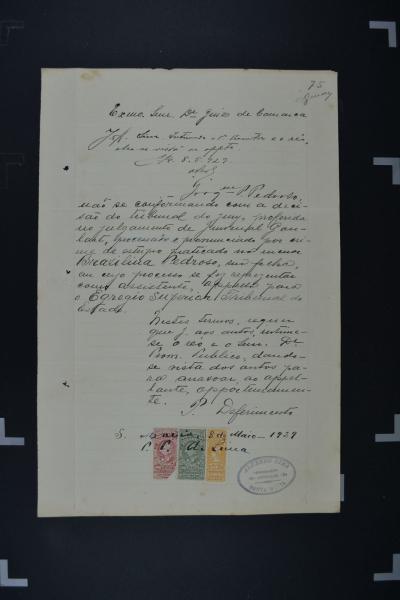 75
Exmo. Snr. Dr. Juiz de Comarca
J. Snr.
8.5.929.
Pedroso,
não se conformando com a deci-
são do tribunal do jury, proferida
no julgamento de Juvenal Gou-
lart, processado e pronunciado por cri-
me de estupro praticado na menor
Brasilina Pedroso, sua filha,
em cujo processo se fez representar
como assistente, appella para
o Egregio Superior Tribunal do
Estado.
Nestes termos, requer
que J. aos autos, intime-
se o réo e o Snr. Dr.
Prom. Publico, dando-
se vista dos autos pa-
ra arrasoar ao appel-
lante, opportunamen-
te.
P. Deferimento
S. Maria, 8 de Maio - 1929
P. P. de Lima